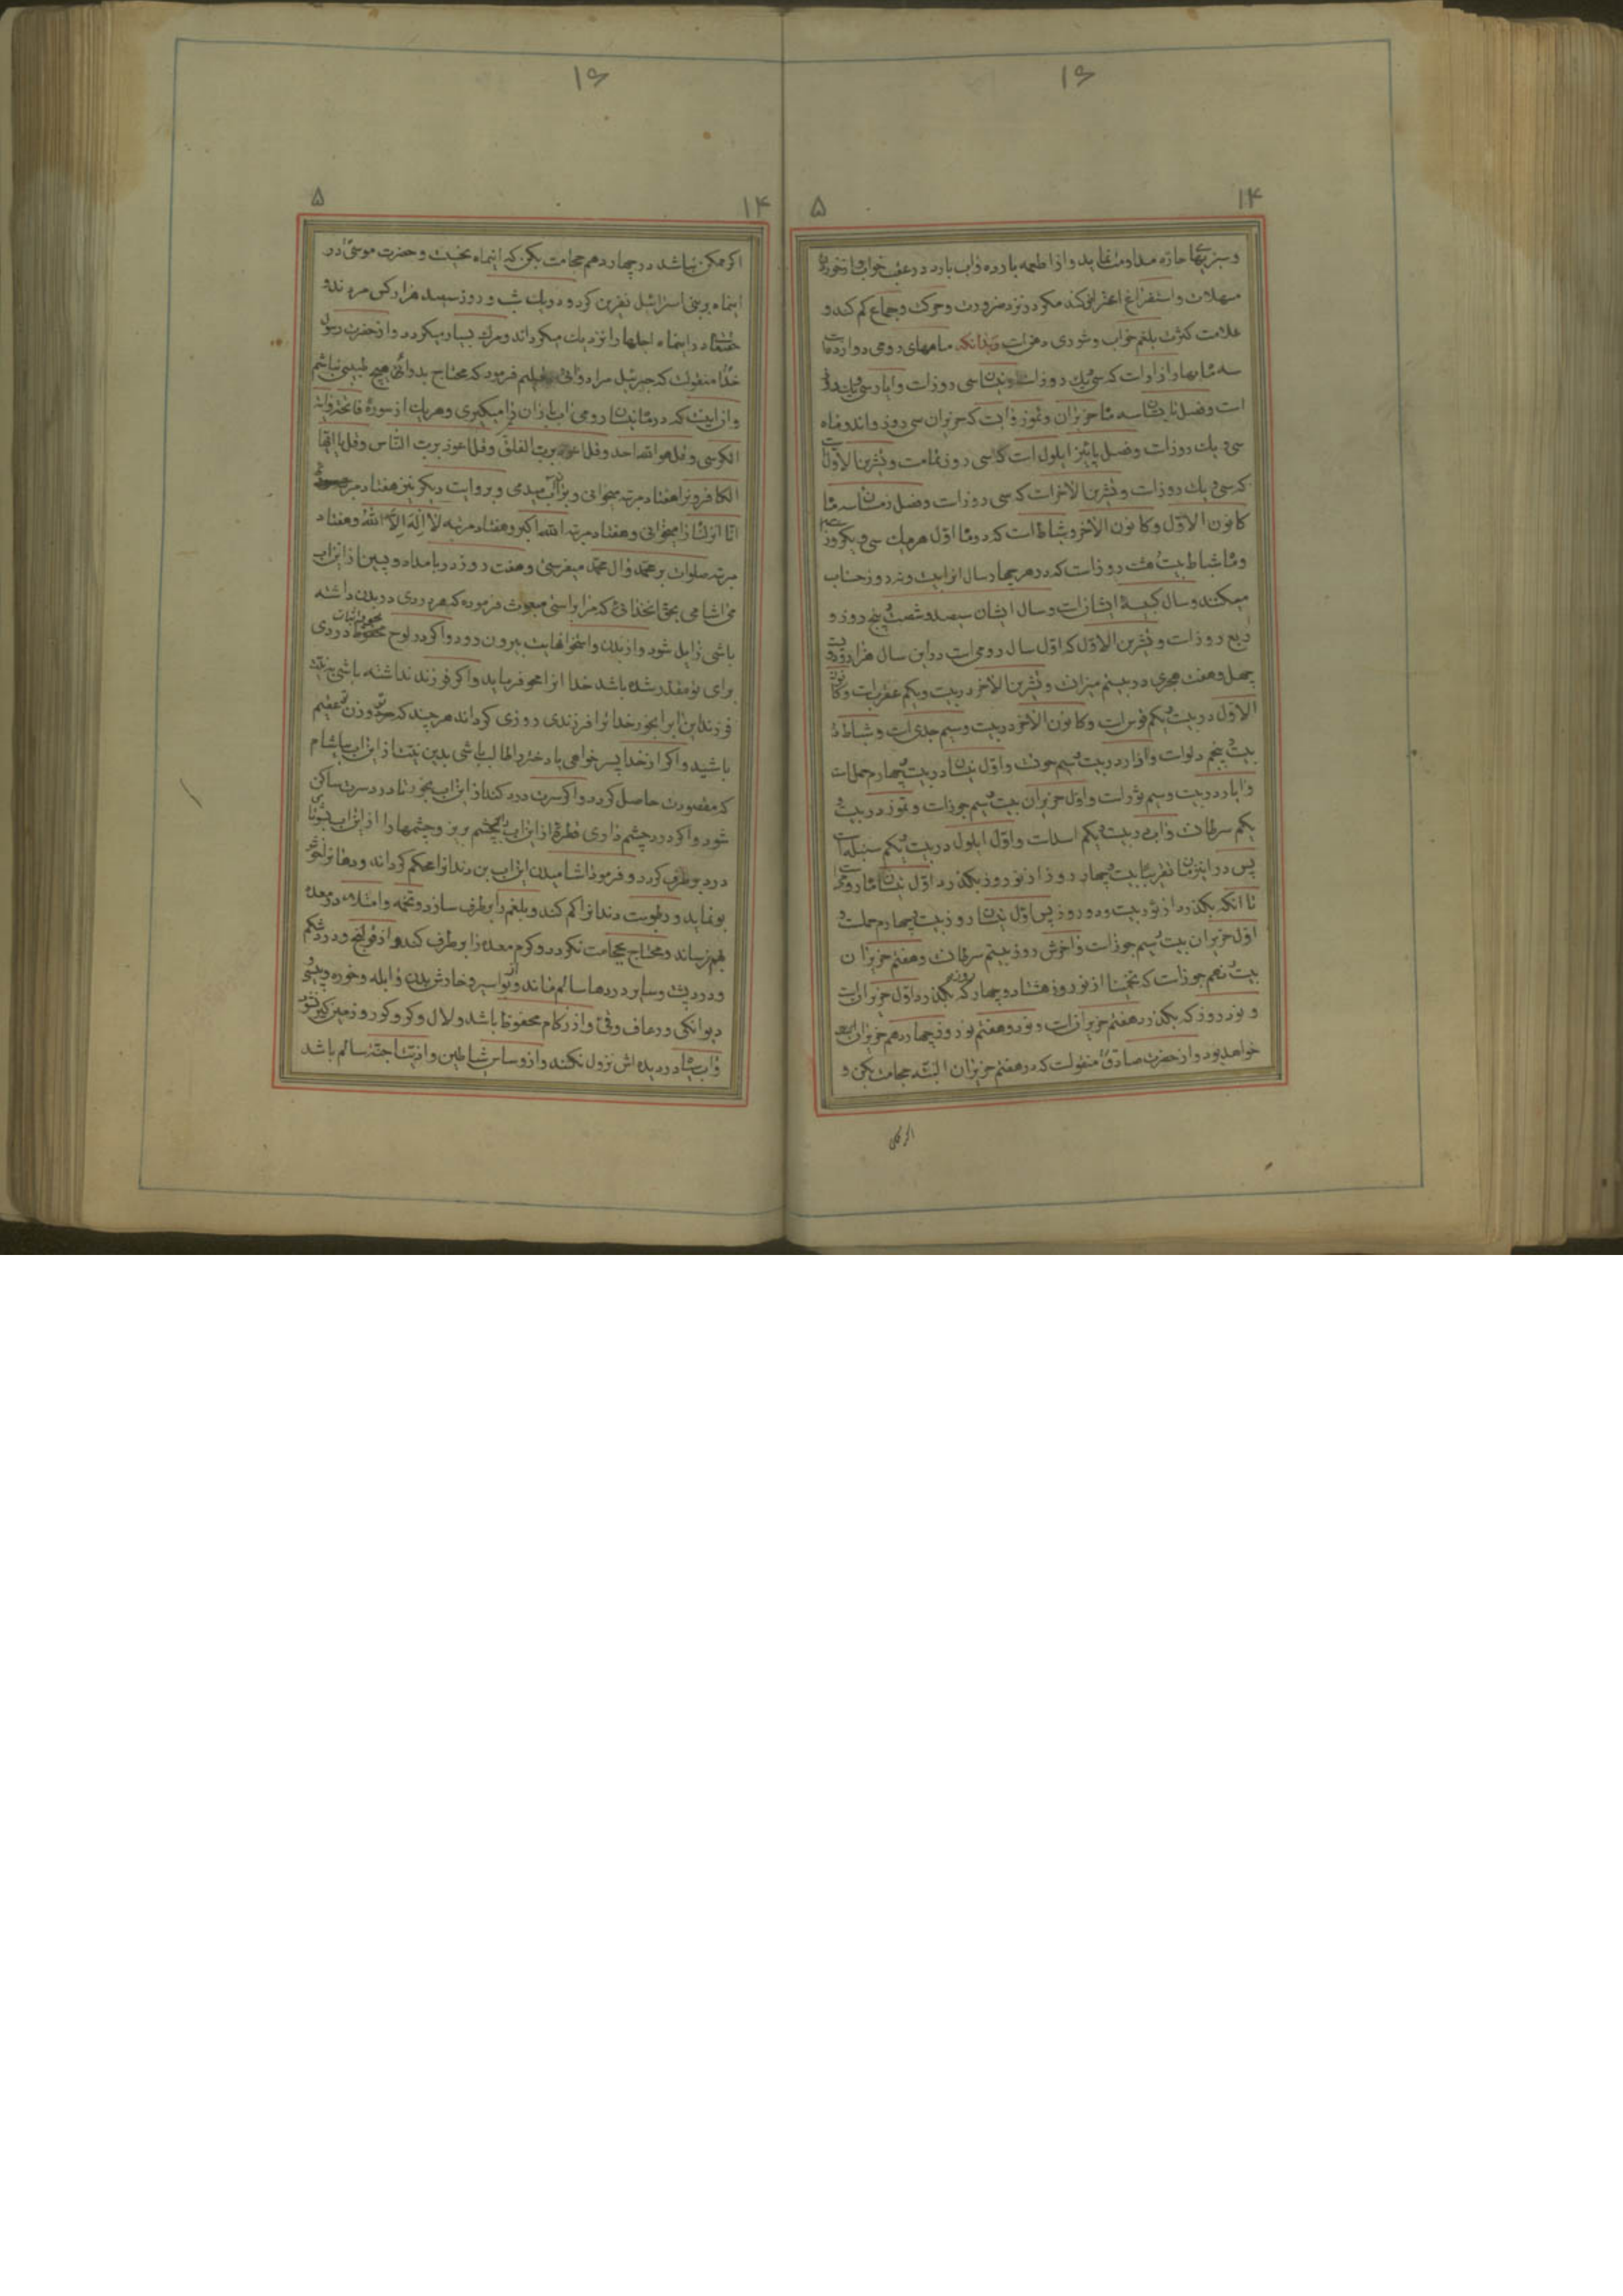 ۱۶
۱۴
۵
و سبزیهای حاره مداومت نماید و از اطعمه بارده و آب بارد در عقب خواب و از خوردن
مسهلات و استفراغ احتراز کند مکر در نزد ضرورت و حرکت و جماع کم کند و
علامت کثرت بلغم خواب و شوری دهن است و بدانکه ماههای رومی دوازده است
سه ماه بهار آذار است که سی و یک روز است و نیسان سی روز است و ایار سی و یک روز
است و فصل تابستان سه ماه حزیران و تموز و آب است که حزیران سی روز و آن دو ماه
سی و یک روز است و فصل پائیز ایلول است که سی روز تمام است و تشرین الاول است
که سی و یک روز است و تشرین الآخر است که سی روز است و فصل زمستان سه ماه
کانون الاول و کانون الآخر و شباط است که دو ماه اول هر یک سی و یکروز است
و ماه شباط بیست و هشت روز است که در هر چهار سال آنرا بیست و نه روز حساب
میکنند و سال کبیسهٔ ایشان است و سال ایشان سیصد و شصت و پنج روز و
ربع روز است و تشرین الاول که اول سال رومی است در این سال هزار و دویست
چهل و هفت هجری در بیستم میزان و تشرین الآخر در بیست و یکم عقرب است و کانون
الاول در بیست و یکم قوس است و کانون الآخر در بیست و سیم جدی است و شباط در
بیست و پنجم دلو است و آذار در بیست و سیم حوت و اول نیسان در بیست و چهارم حمل است
و ایار در بیست و سیم ثور است و اول حزیران بیست و سیم جوزا است و تموز در بیست و
یکم سرطان و آب در بیست و یکم اسد است و اول ایلول در بیست و یکم سنبله است
پس در این زمان تقریبا بیست و چهار روز از نوروز بکذرد اول نیسان ماه رومی است
تا آنکه بکذرد از ثور بیست و دو روز پس اول نیسان روز بیست و چهارم حمل است و
اول حزیران بیست و سیم جوزا است و آخرش روز بیستم سرطان و هفتم حزیران
بیست و نهم جوزا است که تخمینا از نوروز هشتاد و چهار روز که بکذرد اول حزیران است
و نود روز که بکذرد هفتم حزیران است و نود و هفتم نوروز چهاردهم حزیران
خواهد بود و از حضرت صادق ع منقولست که در هفتم حزیران البته حجامت بکن و
اکر ممکن
۱۶
۱۴
۵
اکر ممکن نباشد در چهاردهم حجامت بکن که اینماه نحیست و حضرت موسی ع در
اینماه بر بنی اسرائیل نفرین کرد و در یک شب و روز سیصد هزار کس مردند و
حقتعالی در اینماه اجلها را نزدیک میکرداند و مرک بسیار میکردد و از حضرت رسول
خدا ص منقولست که جبرئیل مرا دوائی تعلیم فرمود که محتاج بدوائی و هیچ طبیبی نباشم
و آن اینست که در ماه نیسان رومی آب باران را میکیری و هر یک از سوره فاتحه و آیة
الکرسی و قل هو الله احد و قل اعوذ برب الفلق و قل اعوذ برب الناس و قل یا ایها
الکافرون را هفتاد مرتبه میخوانی و بر آن آب میدمی و بروایت دیکر نیز هفتاد مرتبه سوره
انا انزلناه را میخوانی و هفتاد مرتبه الله اکبر و هفتاد مرتبه لا اله الا الله و هفتاد
مرتبه صلوات بر محمد و آل محمد میفرستی و هفت روز در بامداد و پسین از این آب
می آشامی بحق آنخدائی که مرا براستی مبعوث فرموده که هر دردی در بدن داشته
باشی زایل شود و از بدن و استخوانهایت بیرون رود و اکر در لوح محفوظ دردی
برای تو مقدر شده باشد خدا آنرا محو فرماید و اکر فرزند نداشته باشی به نیت
فرزند این آبرا بخور خدا ترا فرزندی روزی کرداند هر چند که مرد و زن هر دو عقیم
باشید و اکر از خدا پسر خواهی یا دختر و طالب باشی بدین نیت از این آب بیاشام
که مقصودت حاصل کردد و اکر سرت درد کند از این آب بخور تا درد سرت ساکن
شود و اکر درد چشم داری قطرهٔ از این آب را بچشم بریز و چشمها را از این آب بشوی تا
درد برطرف کردد و فرمود آشامیدن این آب بن دندانرا محکم کرداند و دهانرا خوشبو
نماید و رطوبت دندانرا کم کند و بلغم را برطرف سازد و تخمه و امتلاء در معده
بهم نرساند و محتاج بحجامت نکردد و کرم معده را برطرف کند و از قولنج و درد شکم
و درد پشت و سایر دردها سالم ماند و از بواسیر و خارش بدن و آبله و خوره و پیسی و
دیوانکی و رعاف و قی و از زکام محفوظ باشد و لال و کر و کور و زمین کیر نشود
و آب سیاه در دیده اش نزول نکند و از وساس شیاطین و اذیت اجنه سالم باشد